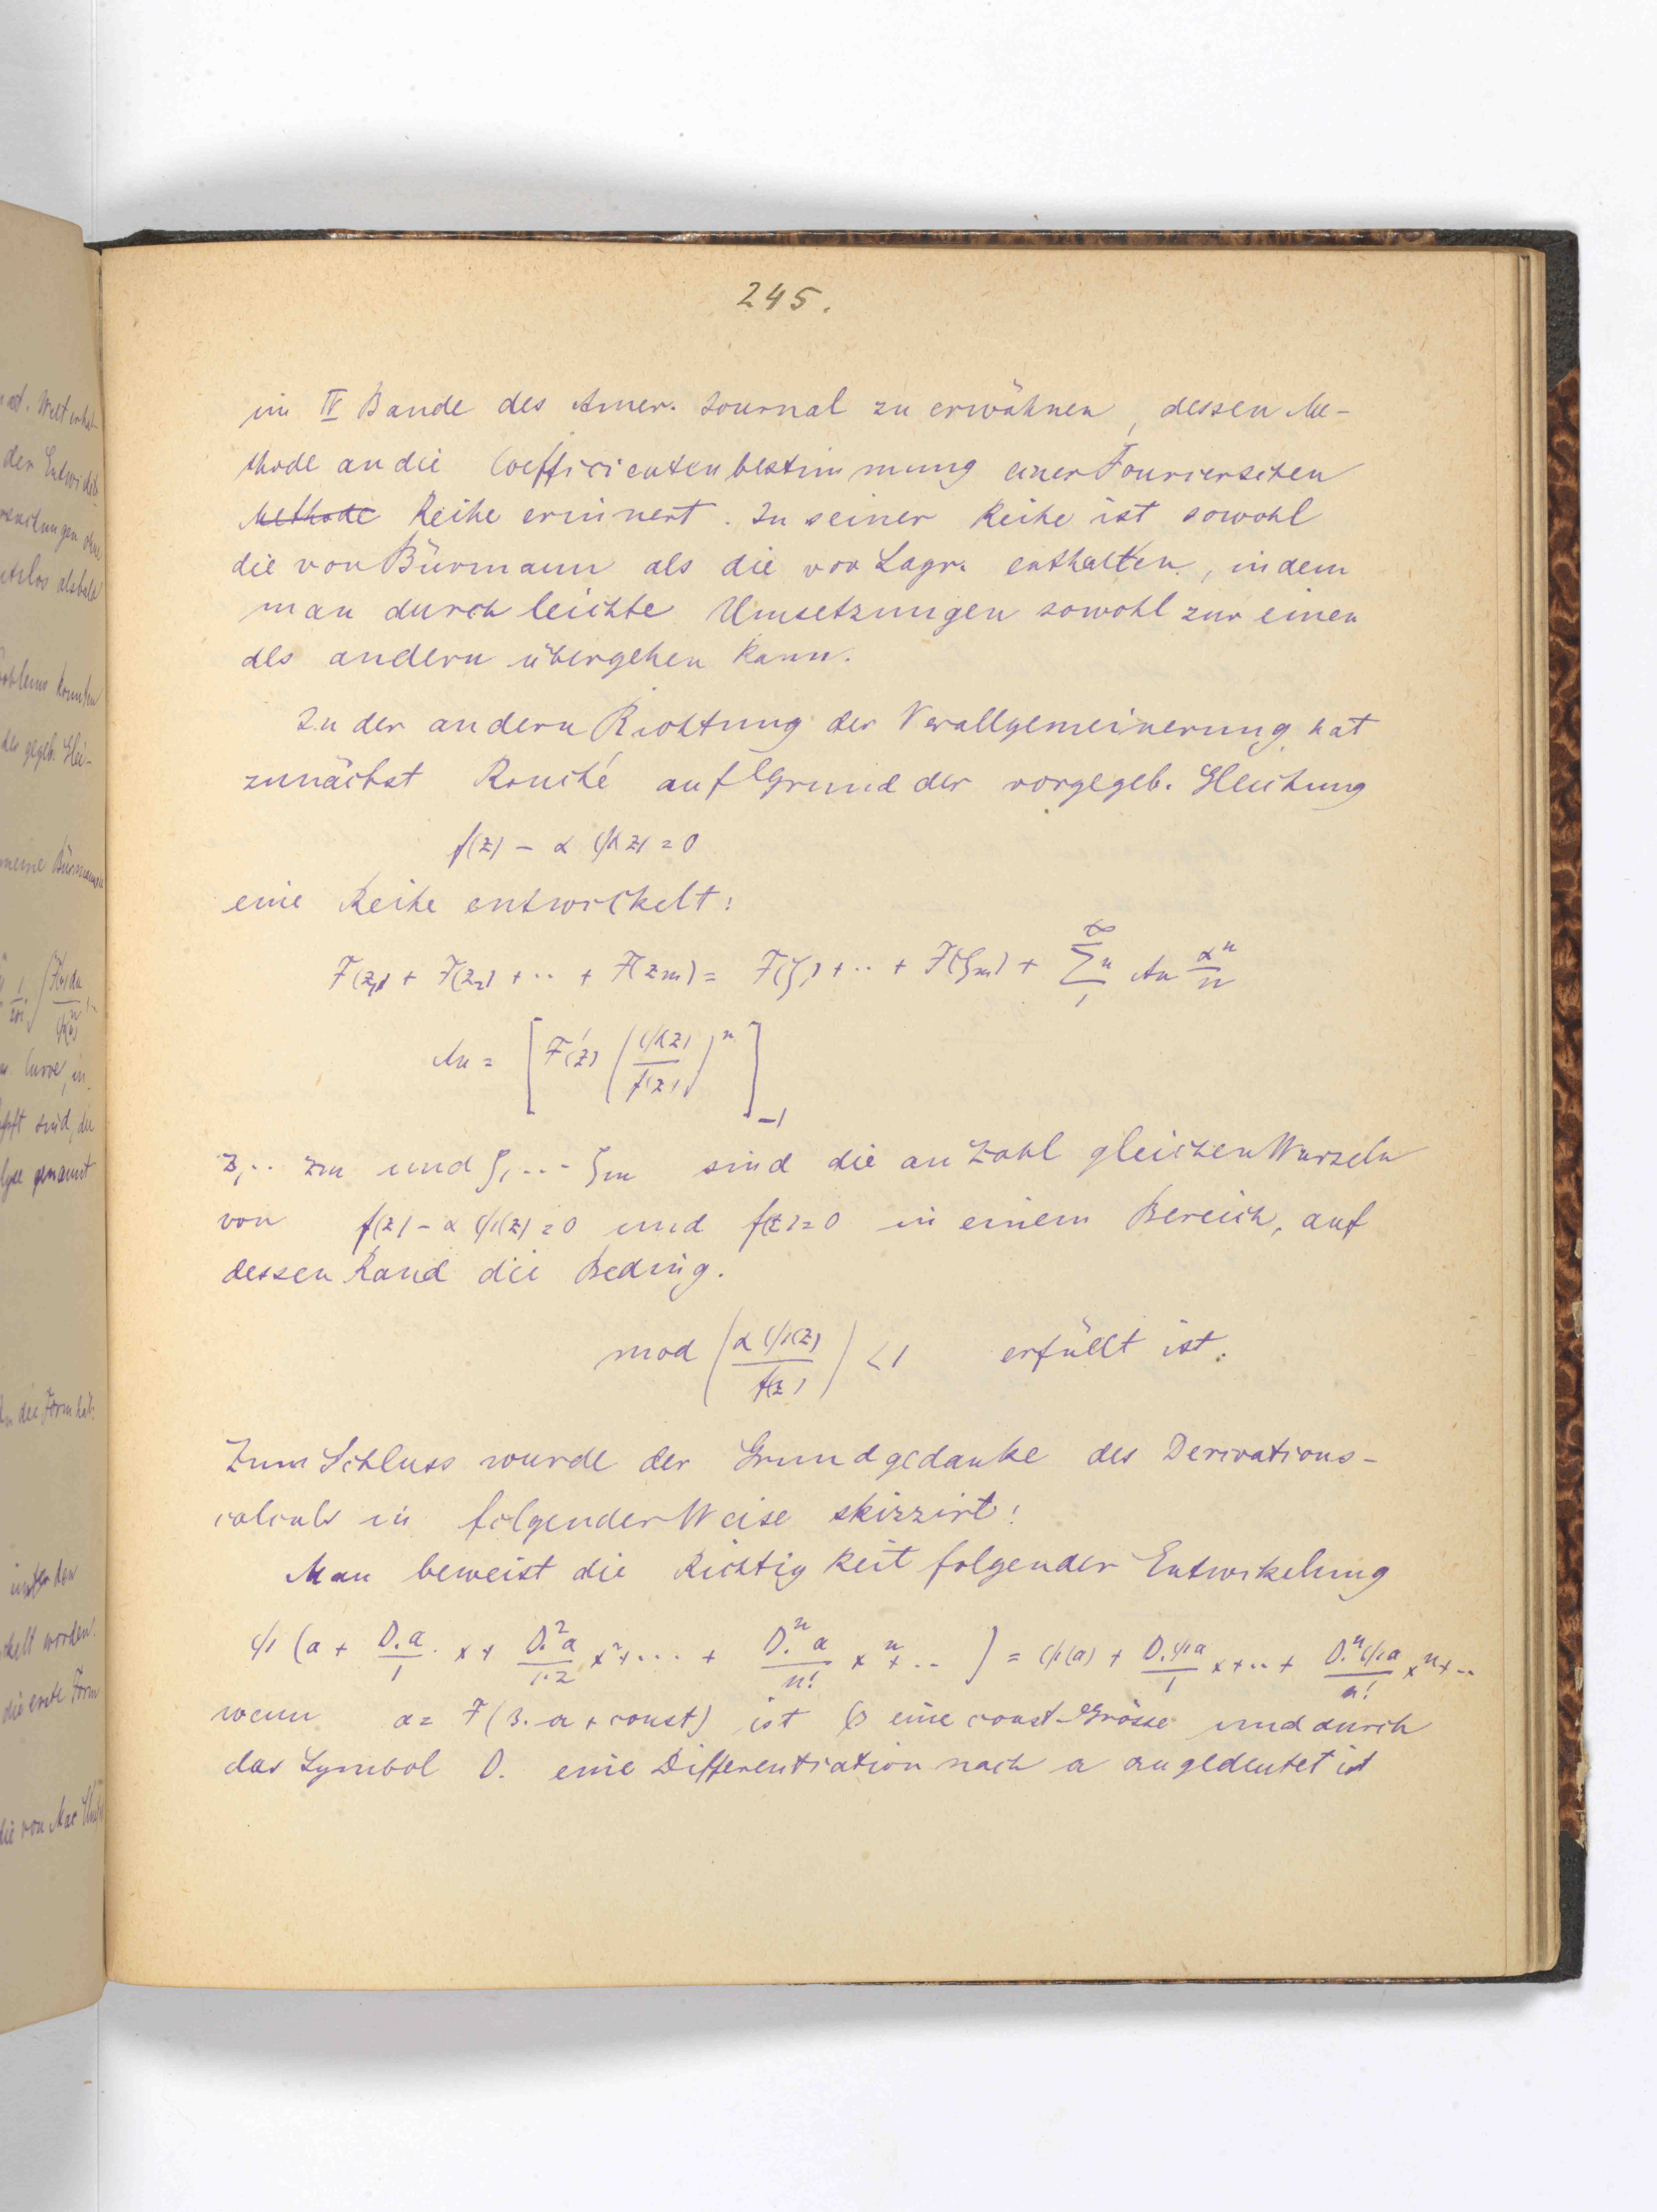 245.
im IV Bande des Amer. Journal zu erwähnen, dessen Me-
thode an die Coefficientenbestimmung einer Fourierschen
Methode Reihe erinnert. In seiner Reihe ist sowohl
die von Bürmann als die von Lagr. enthalten, indem
man durch leichte Umsetzungen sowohl zur einen
als andern übergehen kann.
In der andern Richtung der Verallgemeinerung hat
zunächst Rouché auf Grund der vorgegeb. Gleichung
f(z) - α φ(z) = 0
eine Reihe entwickelt:
F(z₁) + F(z₂) + ·· + F(zm) = F(ζ₁) + ·· + F(ζm) + ∑₁^∞ n An αⁿ/n
An = [F'(z) (φ(z)/f(z))ⁿ]₋₁
z₁·· zm und ζ₁··· ζm sind die an Zahl gleichen Wurzeln
von f(z) - α φ(z) = 0 und f(z) = 0 in einem Bereich, auf
dessen Rand die Beding.
mod (α φ(z)/f(z)) < 1 erfüllt ist.
Zum Schluss wurde der Grundgedanke des Derivations-
calculs in folgender Weise skizzirt:
Man beweist die Richtigkeit folgender Entwikelung
φ(a + D.a/1 · x + D.²a/1·2 x² + ··· + D.ⁿa/n! xⁿ + ··) = φ(a) + D.φa/1 x + ·· + D.ⁿφa/n! xⁿ + ··
wenn a = F(β.α + const) ist β eine const-Grösse und durch
das Symbol D. eine Differentiation nach α angedeutet ist